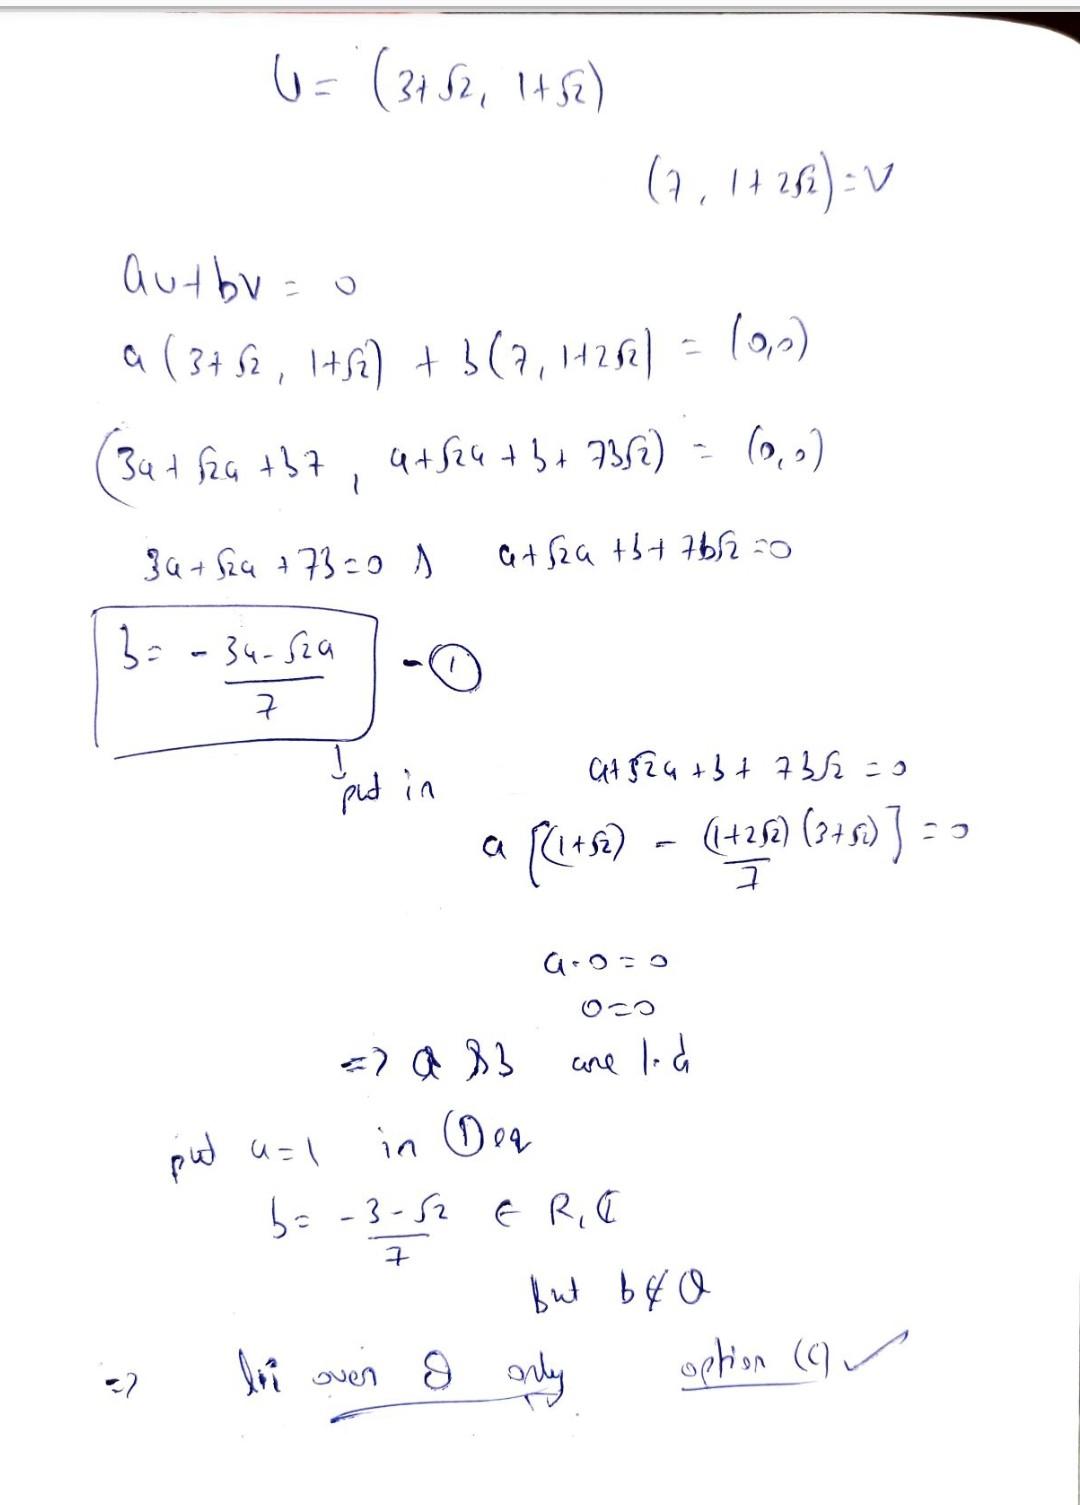 U = (3+√2, 1+√2)
(7, 1+2√2) = V
au+bv = 0
a(3+√2, 1+√2) + b(7, 1+2√2) = (0,0)
(3a+√2a+b7, a+√2a+b+7b√2) = (0,0)
3a+√2a+7b=0 & a+√2a+b+7b√2=0
b = -3a-√2a / 7 - ①
↓ put in
a+√2a+b+7b√2=0
a[(1+√2) - (1+2√2)(3+√2)/7] = 0
a·0=0
0=0
=> a & b are l.d
put a=1 in ① eq
b = -3-√2 / 7 ∈ R, ℂ
but b∉Q
=> li over Q only option (c) ✓